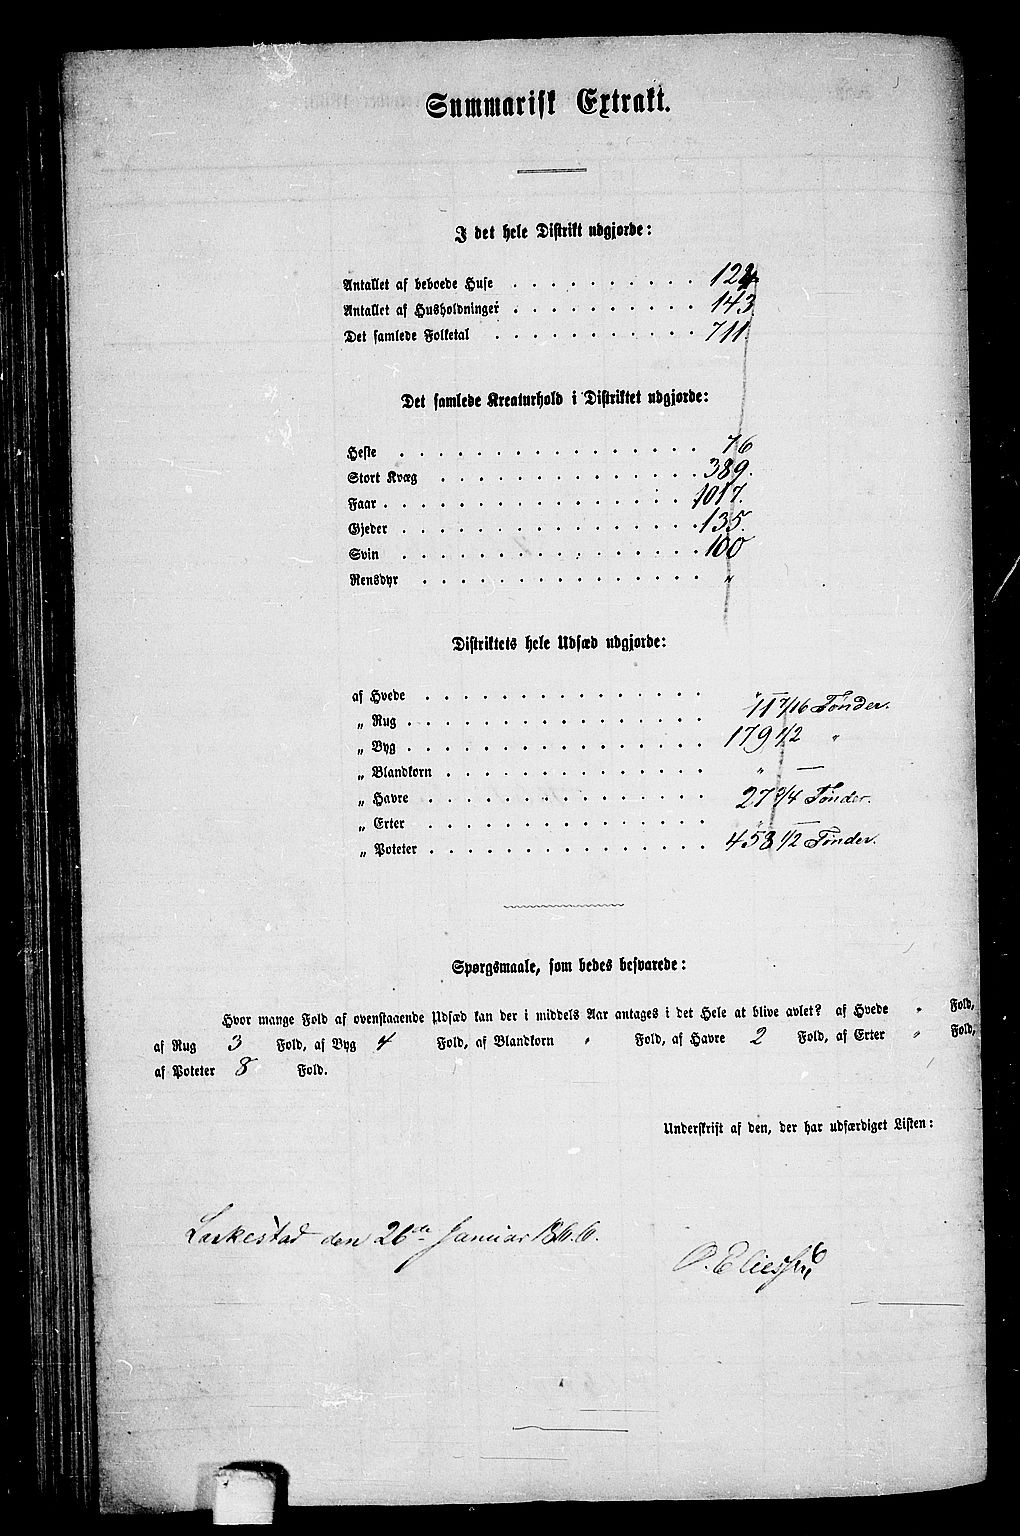 Summarisk Extrakt.
I det hele Distrikt udgjorde:
Antallet af beboede Huse . . . . . . . . . . 124
Antallet af Husholdninger . . . . . . . . . . 143
Det samlede Folketal . . . . . . . . . . . 711.
Det samlede Kreaturhold i Distriktet udgjorde:
Heste . . . . . . . . . . . . . . . . 76
Stort Kvæg . . . . . . . . . . . . . . 389.
Faar . . . . . . . . . . . . . . . . . 1017.
Gjeder . . . . . . . . . . . . . . . . 135.
Svin . . . . . . . . . . . . . . . . 100
Rensdyr . . . . . . . . . . . . . . . „
Distriktets hele Udsæd udgjorde:
af Hvede . . . . . . . . . . . . . . . „ —
„ Rug . . . . . . . . . . . . . . . . 11 7/16 Tønder.
„ Byg . . . . . . . . . . . . . . . . 179 1/2 „
„ Blandkorn . . . . . . . . . . . . . . „ —
„ Havre . . . . . . . . . . . . . . . 27 3/4 Tønder.
„ Erter . . . . . . . . . . . . . . . „ —
„ Poteter . . . . . . . . . . . . . . . 458 1/2 Tønder.
Spørgsmaale, som bedes besvarede:
Hvor mange Fold af ovenstaaende Udsæd kan der i middels Aar antages i det Hele at blive avlet? af Hvede „ Fold,
af Rug 3 Fold, af Byg 4 Fold, af Blandkorn „ Fold, af Havre 2 Fold, af Erter „ Fold,
af Poteter 8 Fold.
Underskrift af den, der har udfærdiget Listen:
den 26de Januar 1866.